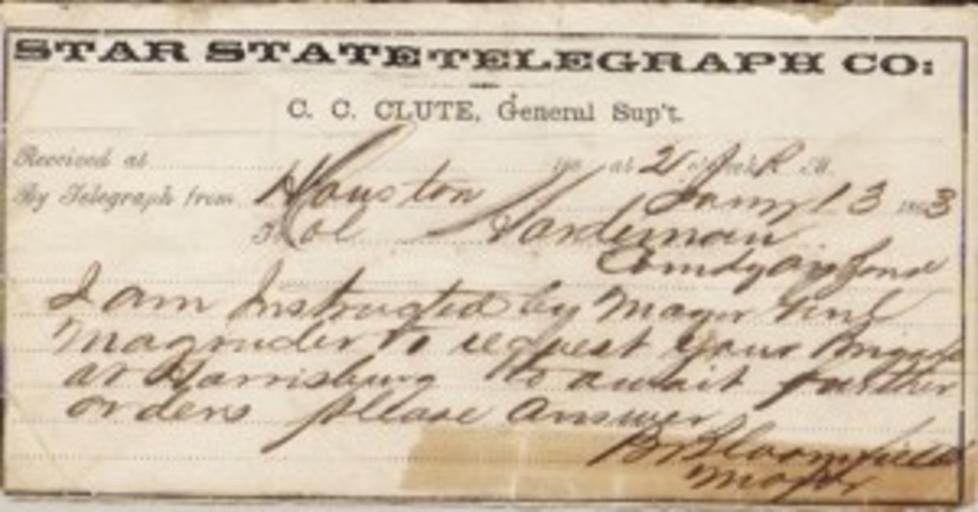 STAR STATE TELEGRAPH CO:
C. C. CLUTE, General Sup't.
Received at at 2 o'clock P. M.
By Telegraph from Houston Jany 13 1863
To Col Hardeman
Comdg
I am Instructed by Major Genl
Magruder to request your Brigade
at Harrisburg to await further
orders please answer
B Bloomfield
Major